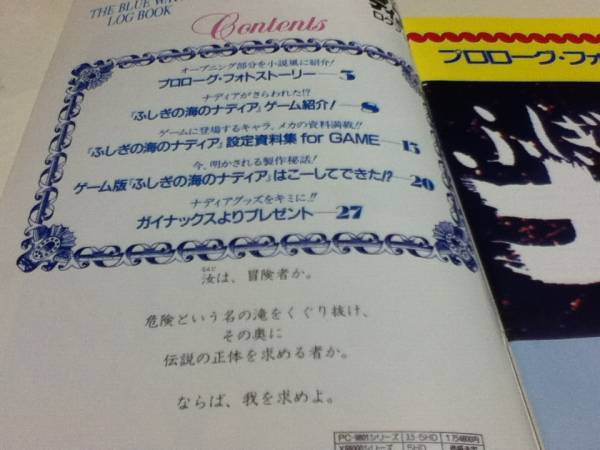 THE BLUE WAT
LOG BOOK
Contents
オープニング部分を小説風に紹介!
プロローグ・フォトストーリー—5
ナディアがさらわれた!?
『ふしぎの海のナディア』ゲーム紹介!—8
ゲームに登場するキャラ、メカの資料満載!!
『ふしぎの海のナディア』設定資料集 for GAME—15
今、明かされる製作秘話!
ゲーム版『ふしぎの海のナディア』はこーしてできた!?—20
ナディアグッズをキミに!!
ガイナックスよりプレゼント—27
汝は、冒険者か。
危険という名の滝をくぐり抜け、
その奥に
伝説の正体を求める者か。
ならば、我を求めよ。
PC-9801シリーズ 3.5・5HD 1万4800円
X68000シリーズ 5HD
プロローグ・フォ
ふしぎ